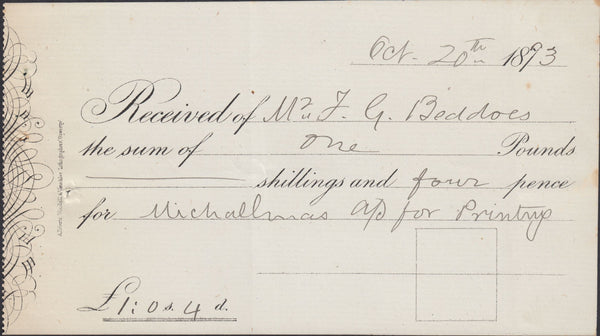 Oct. 20th 1893
Received of Mr. F. G. Beddoes
the sum of One Pounds
shillings and four pence
for Michallmas a/c for Printing
£1: 0 s. 4 d.